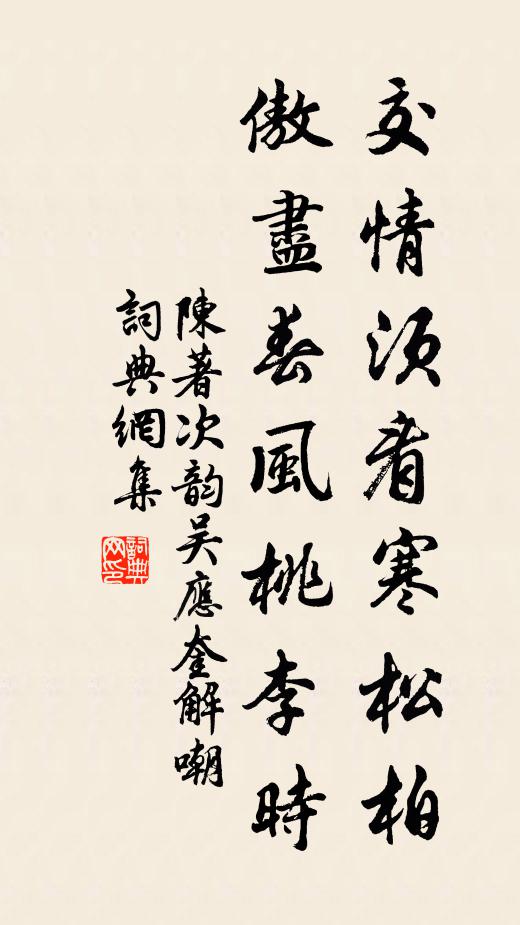 交情須看寒松柏
傲盡春風桃李時
陳著次韵吴應奎解嘲
詞典網集
詞典网印